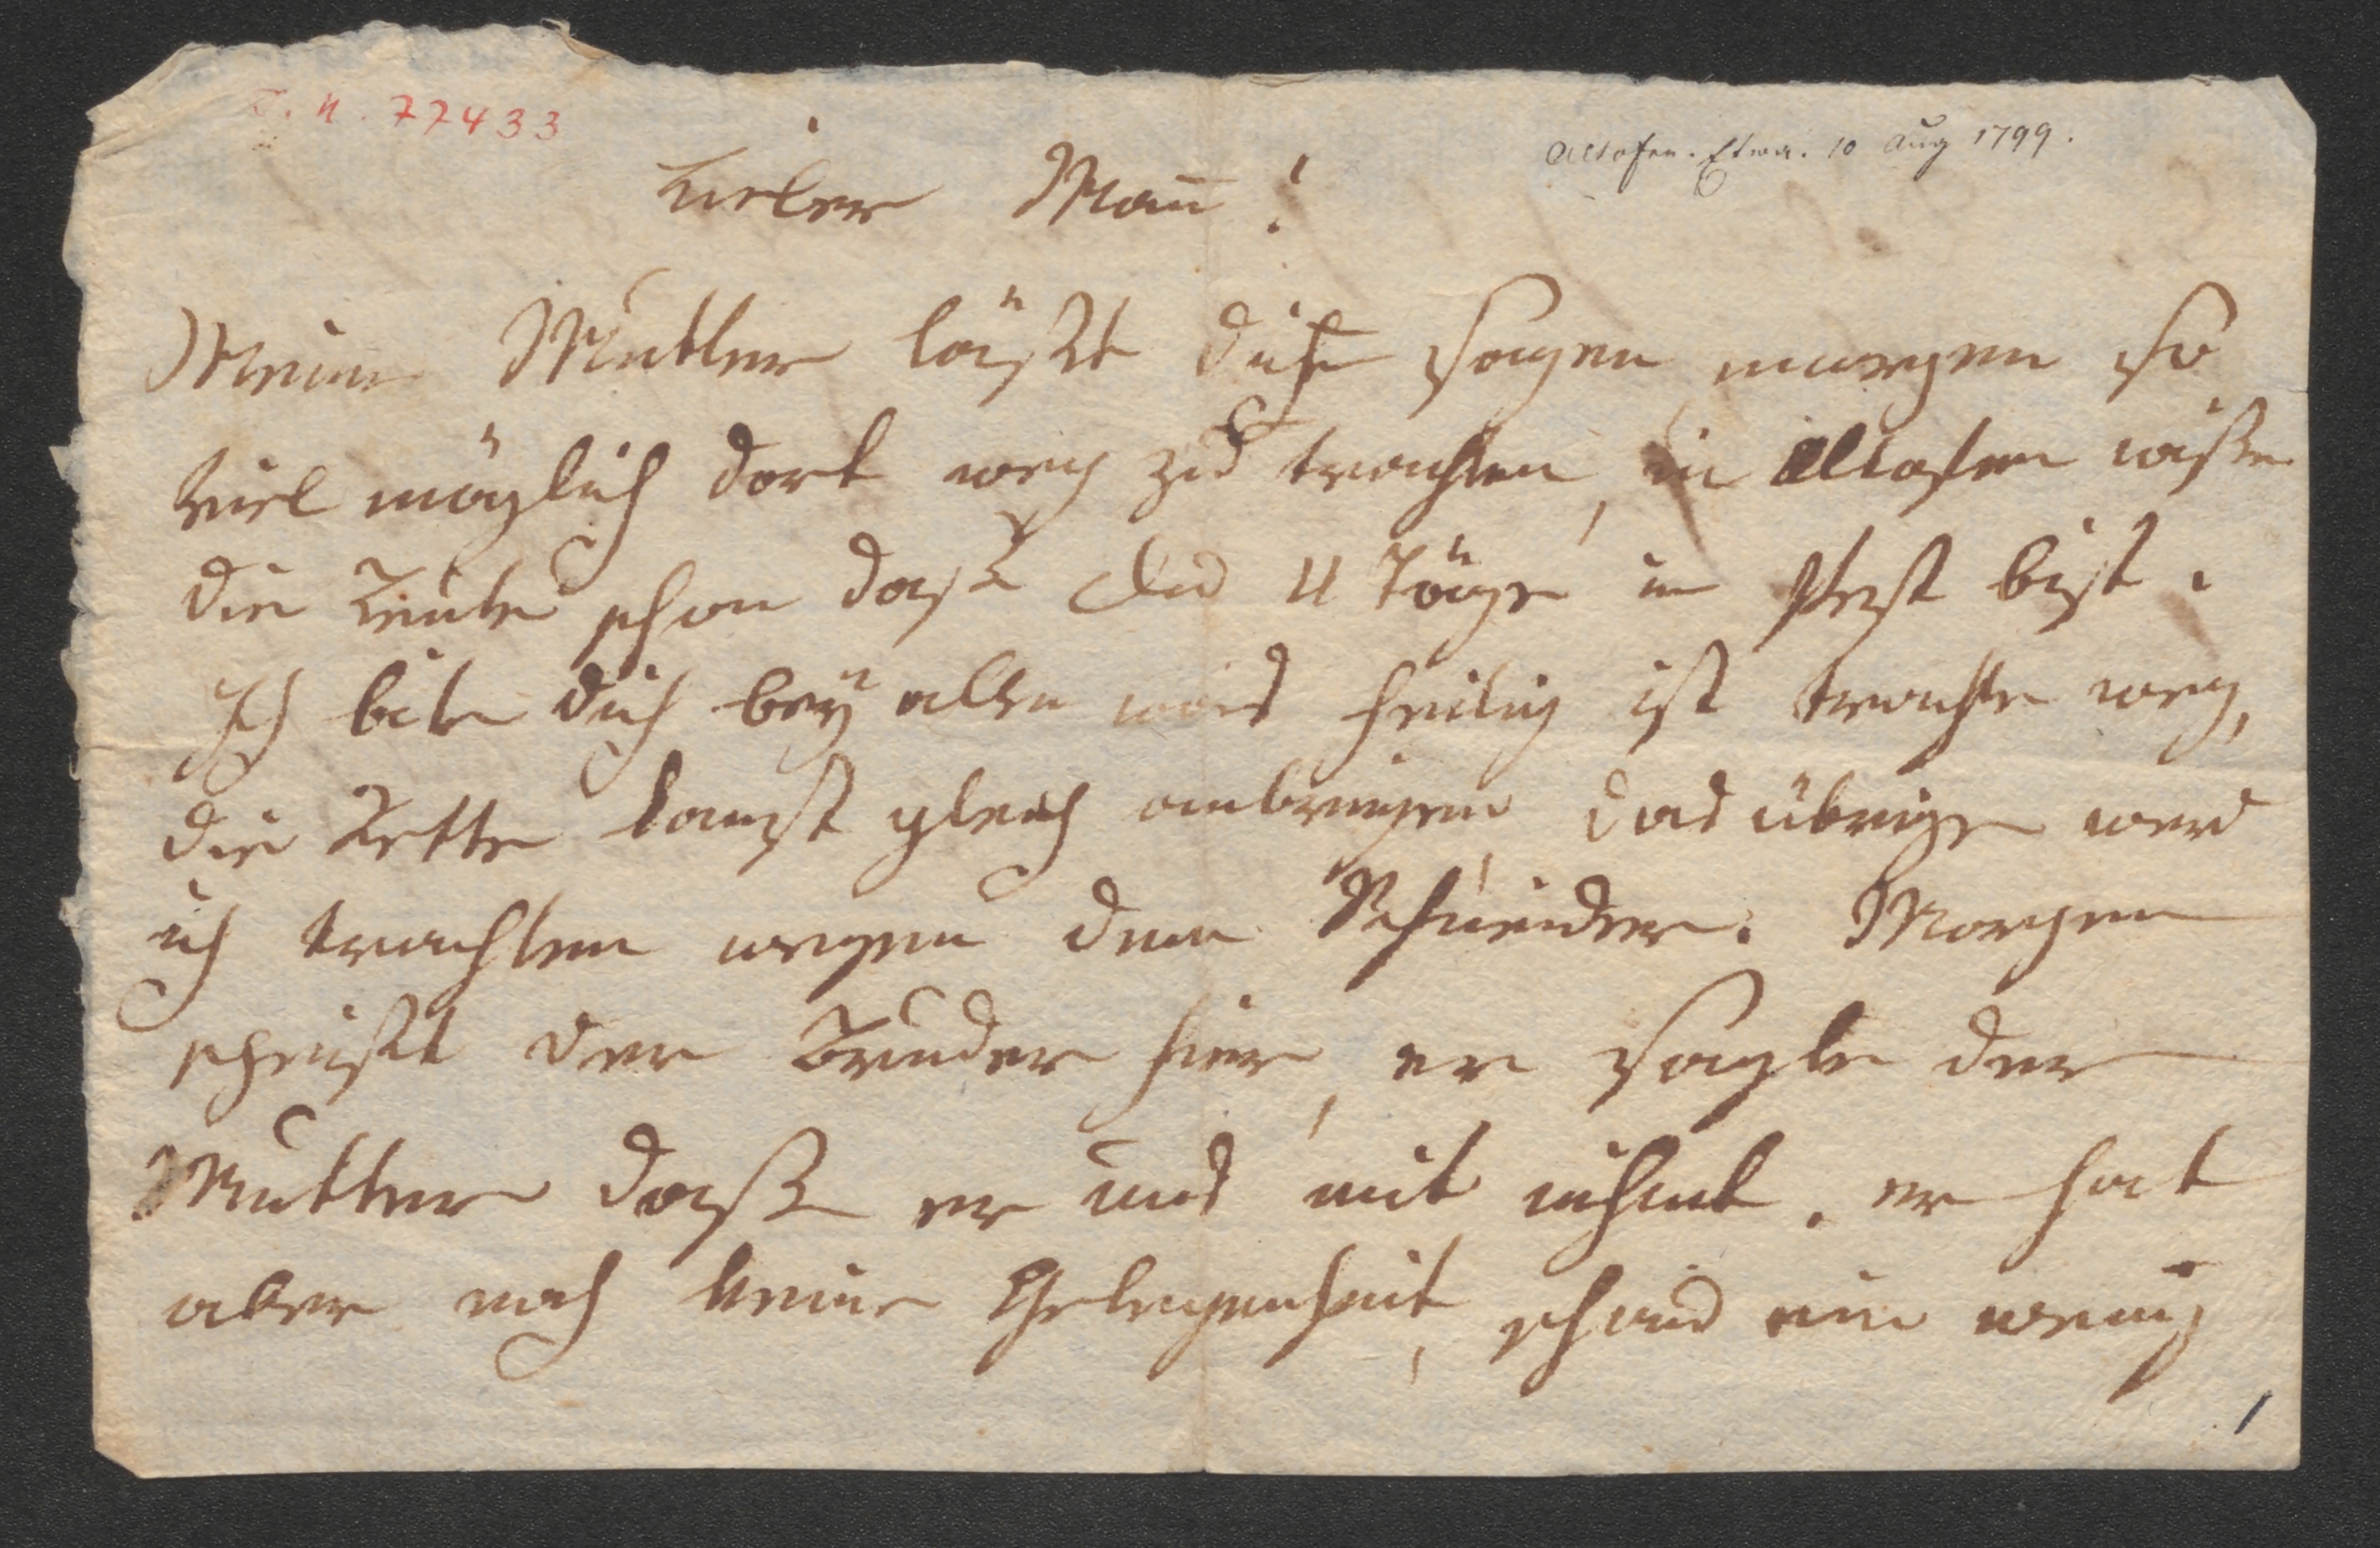 I. N. 77433
Altofen. Etwa. 10 Aug 1799.
Lieber Man̄!
Meine Mutter läßt dich sagen morgen so
viel möglich dort weg zu trachten, in Altofen wiße
die Leute schon daß du 4 Täge in Pest bist.
Ich bite dich bey allen was heilig ist trachte weg,
die Bette kanst gleich anbringen, das übrige werd
ich trachten wegen dem Schneider. Morgen
scheißt der Bruder hier, er sagte der
Mutter daß er uns mit nihmt. er hat
aber noch keine Gelegenheit, schaud ein wenig
1